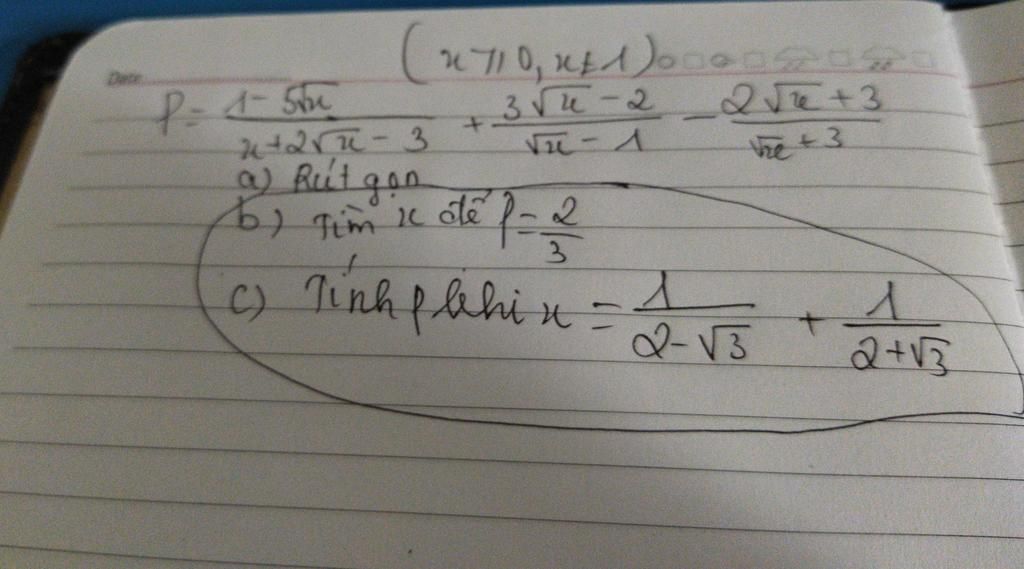 (x ⩾ 0, x ≠ 1)
Date
P = \frac{1 - 5\sqrt{x}}{x + 2\sqrt{x} - 3} + \frac{3\sqrt{x} - 2}{\sqrt{x} - 1} - \frac{2\sqrt{x} + 3}{\sqrt{x} + 3}
a) Rút gọn
b) Tìm x để P = \frac{2}{3}
c) Tính P khi x = \frac{1}{2 - \sqrt{3}} + \frac{1}{2 + \sqrt{3}}